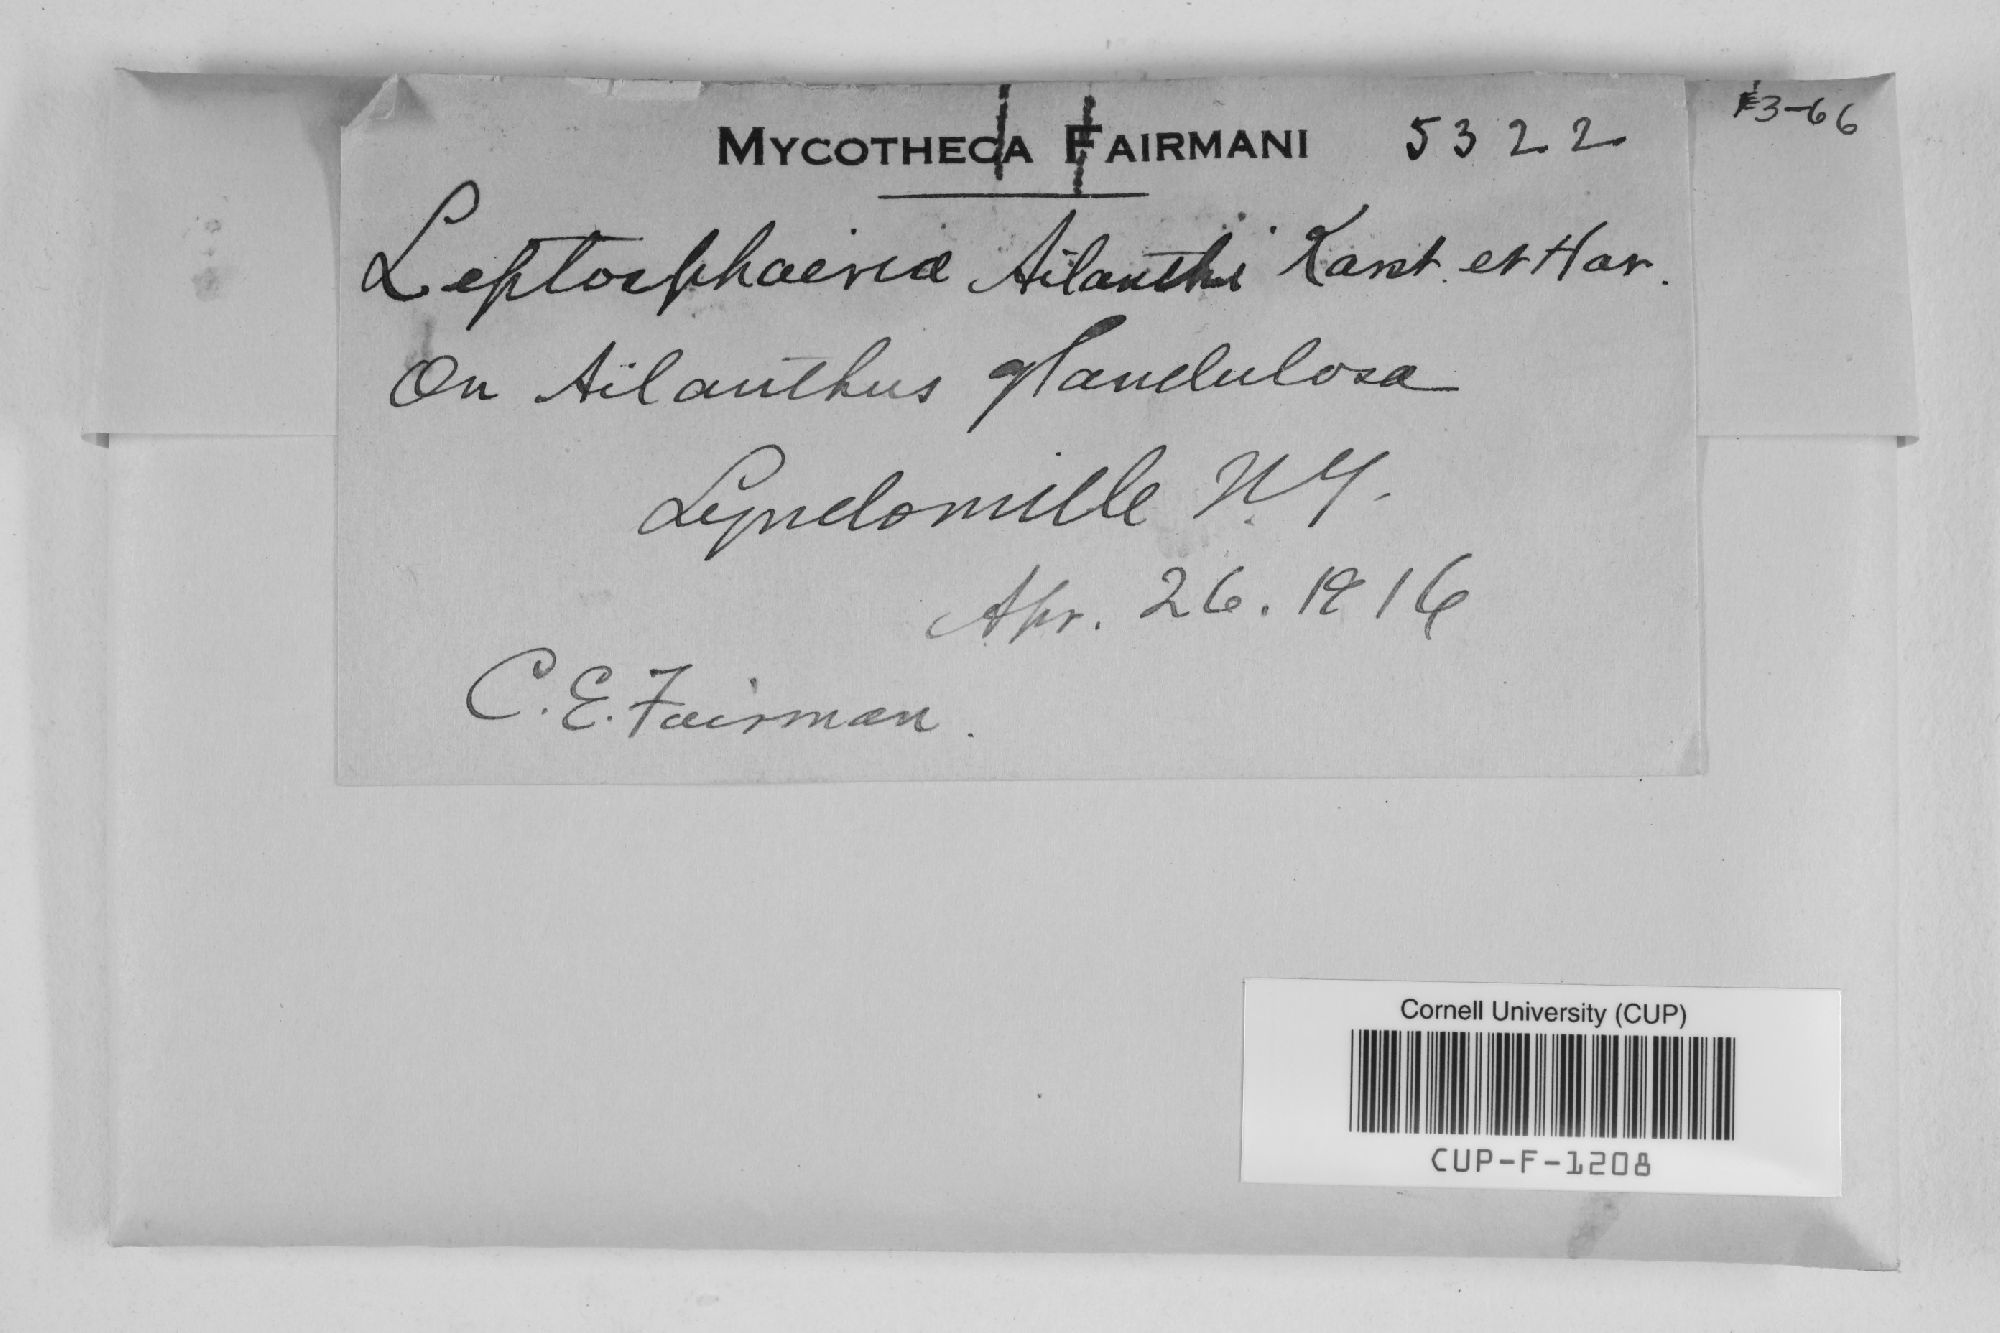 MYCOTHECA FAIRMANI 5322
Leptosphaeria Ailanthi Karst. et Har.
On Ailanthus glandulosa
Lyndonville N.Y.
Apr. 26. 1916
C. E. Fairman.
3-66
Cornell University (CUP)
CUP-F-1208